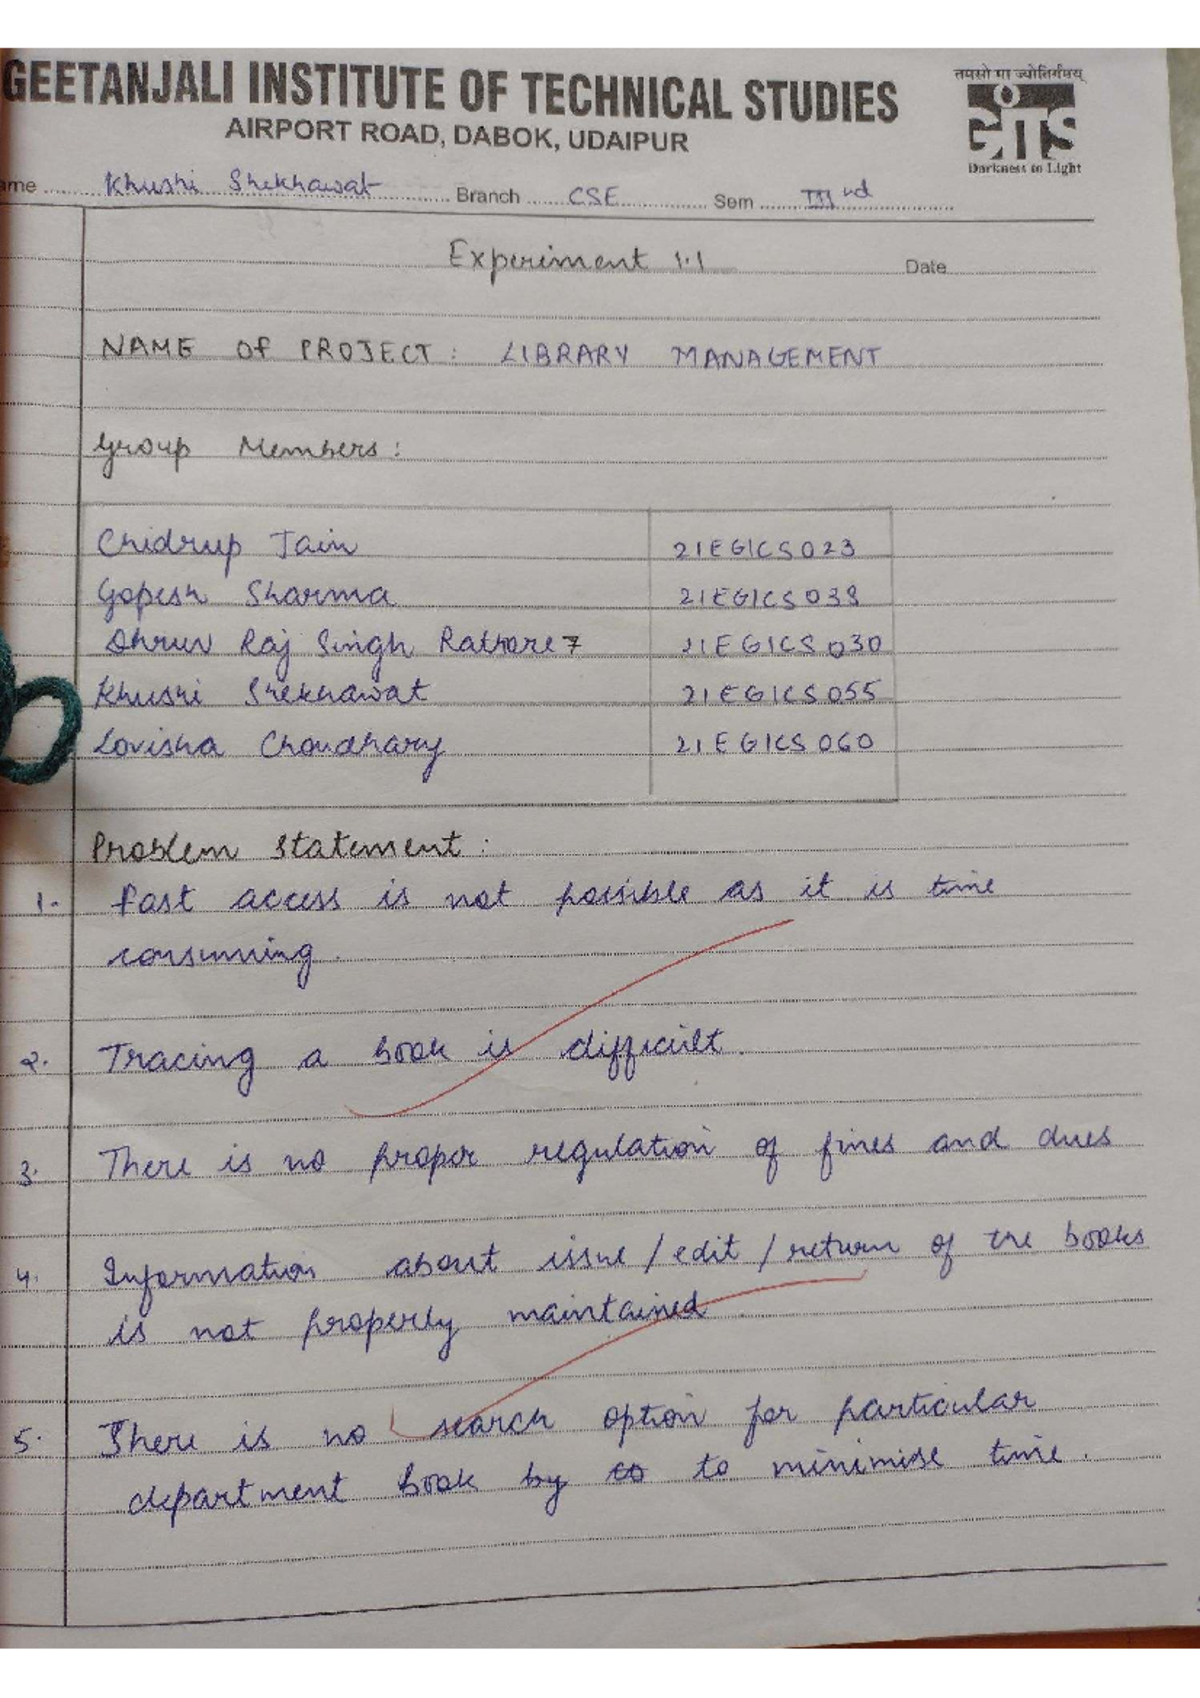 GEETANJALI INSTITUTE OF TECHNICAL STUDIES
तमसो मा ज्योतिर्गमय्
AIRPORT ROAD, DABOK, UDAIPUR
GITS
Darkness to Light
ame ...... Khushi Shekhawat ...... Branch ...... CSE ...... Sem ...... IIIrd
Experiment 1.1
Date
NAME Of PROJECT : LIBRARY MANAGEMENT
Group Members :
Chidrup Jain 21EGICS023
Gopesh Sharma 21EGICS038
Dhruv Raj Singh Rathore 7 21EGICS030
Khushi Shekhawat 21EGICS055
Lovisha Choudhary 21EGICS060
Problem Statement :
1. Fast access is not possible as it is time
consuming.
2. Tracing a book is difficult.
3. There is no proper regulation of fines and dues
4. Information about issue / edit / return of the books
is not properly maintained.
5. There is no search option for particular
department book by to to minimise time.